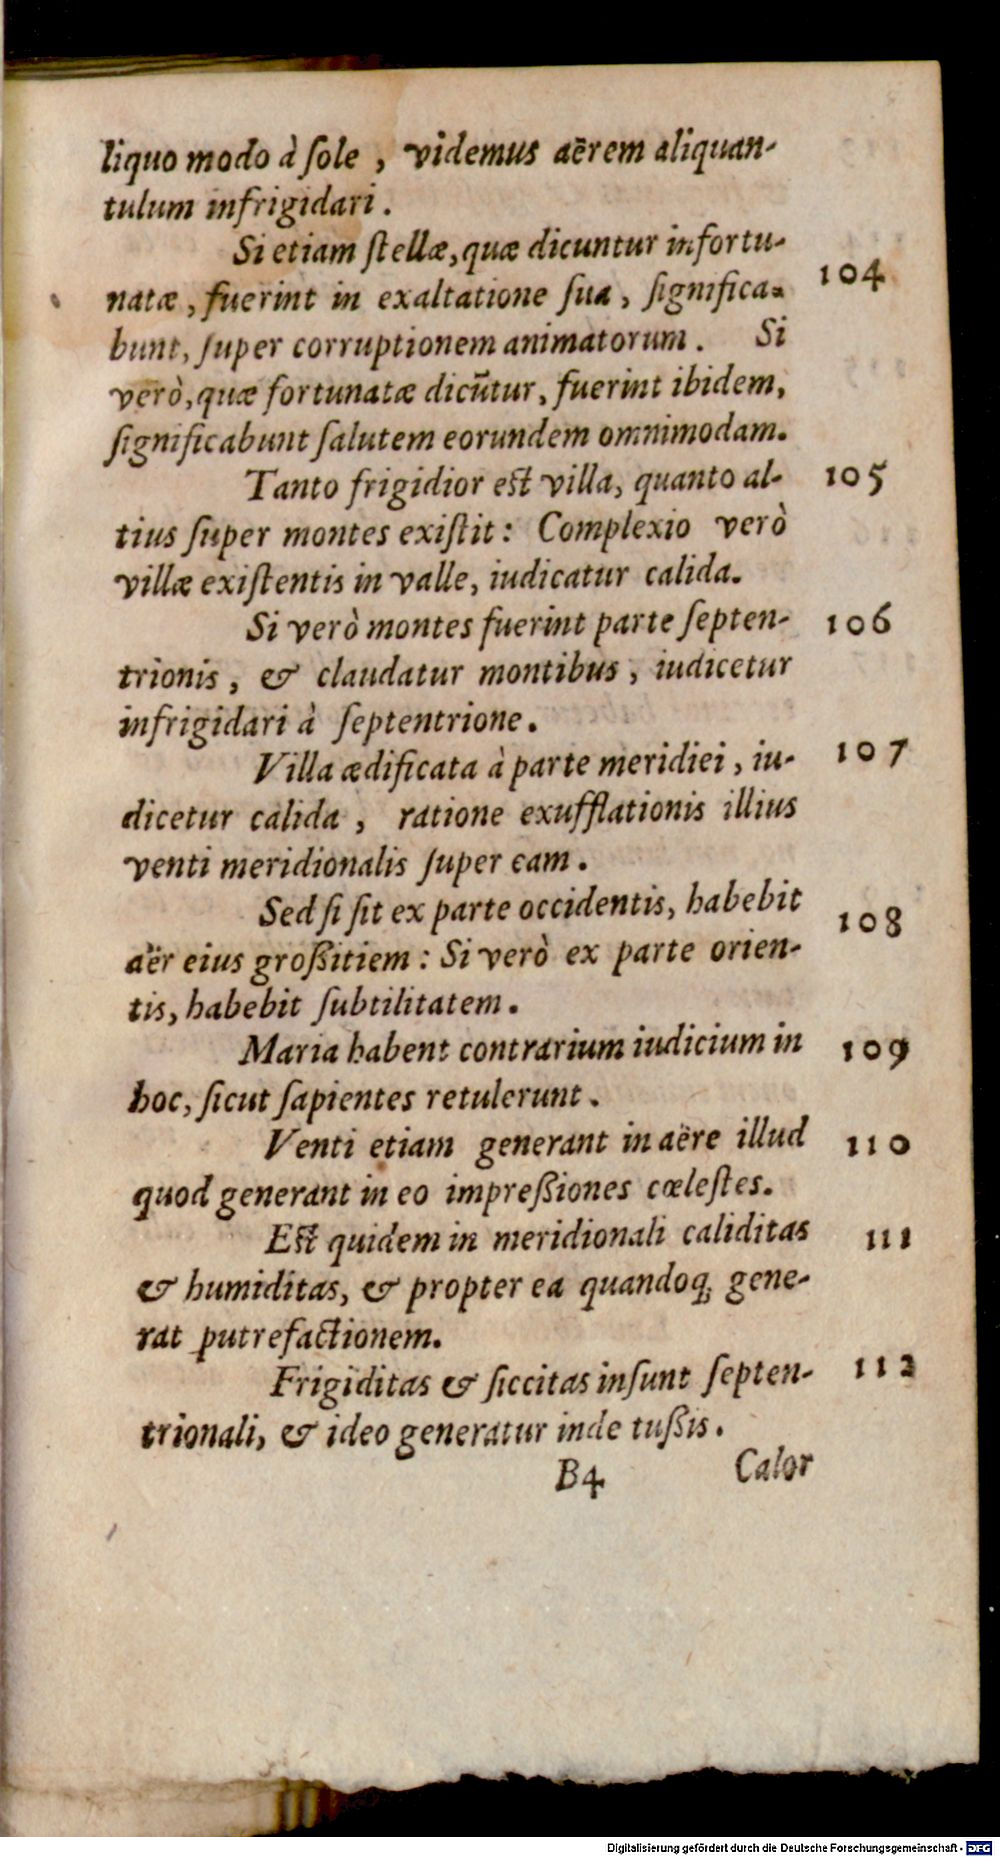 liquo modo à ſole , videmus aërem aliquan-
tulum infrigidari .
Si etiam ſtellæ, quæ dicuntur infortu-
natæ , fuerint in exaltatione ſua , ſignifica-
104
bunt, ſuper corruptionem animatorum . Si
verò, quæ fortunatæ dicūtur, fuerint ibidem,
ſignificabunt ſalutem eorundem omnimodam.
Tanto frigidior eſt villa, quanto al-
105
tius ſuper montes exiſtit : Complexio verò
villæ exiſtentis in valle, iudicatur calida.
Si verò montes fuerint parte ſepten-
106
trionis , & claudatur montibus , iudicetur
infrigidari à ſeptentrione .
Villa ædificata à parte meridiei , iu-
107
dicetur calida , ratione exufflationis illius
venti meridionalis ſuper eam .
Sed ſi ſit ex parte occidentis, habebit
108
aër eius großitiem : Si verò ex parte orien-
tis, habebit ſubtilitatem .
Maria habent contrarium iudicium in
109
hoc, ſicut ſapientes retulerunt .
Venti etiam generant in aëre illud
110
quod generant in eo impreßiones cœleſtes.
Eſt quidem in meridionali caliditas
111
& humiditas, & propter ea quandoq; gene-
rat putrefactionem.
Frigiditas & ſiccitas inſunt ſepten-
112
trionali, & ideo generatur inde tußis .
B4 Calor
Digitalisierung gefördert durch die Deutsche Forschungsgemeinschaft - DFG